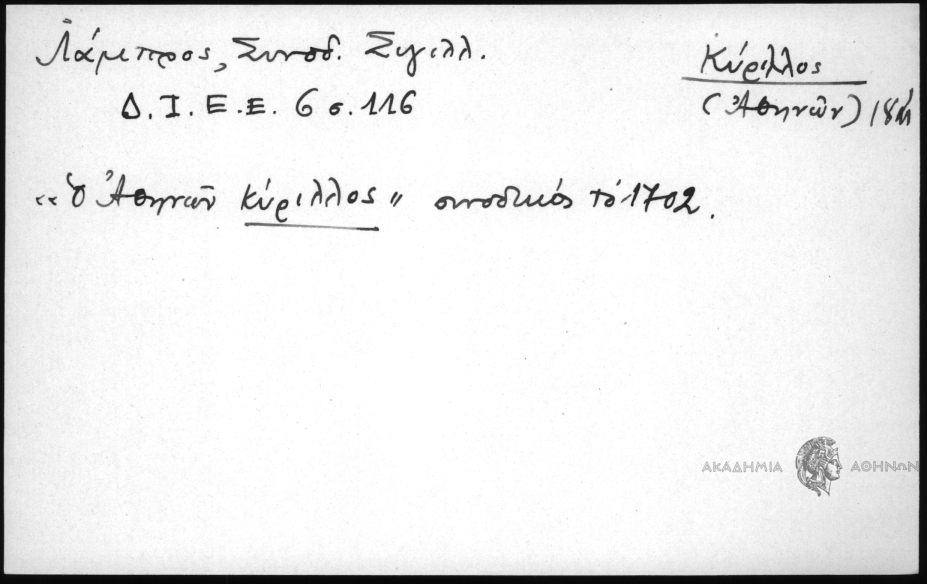 Λάμπρος, Συνοδ. Σιγιλλ.
Δ. Ι. Ε. Ε. 6 σ. 116
Κύριλλος
(Ἀθηνῶν) 18
«ὁ Ἀθηνῶν Κύριλλος» συνοδικός τό 1702.
ΑΚΑΔΗΜΙΑ ΑΘΗΝΩΝ